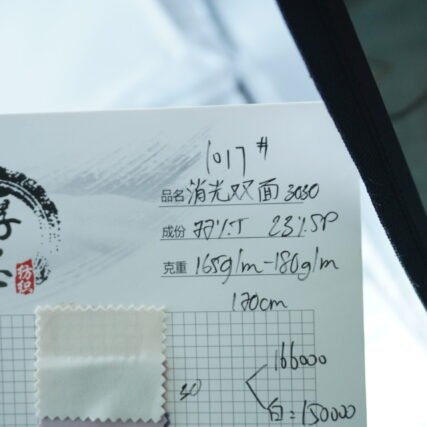 1017#
品名 消光双面 3030
成份 77%T 23%SP
克重 165g/m-180g/m
170cm
纺织
40
166000
白=150000